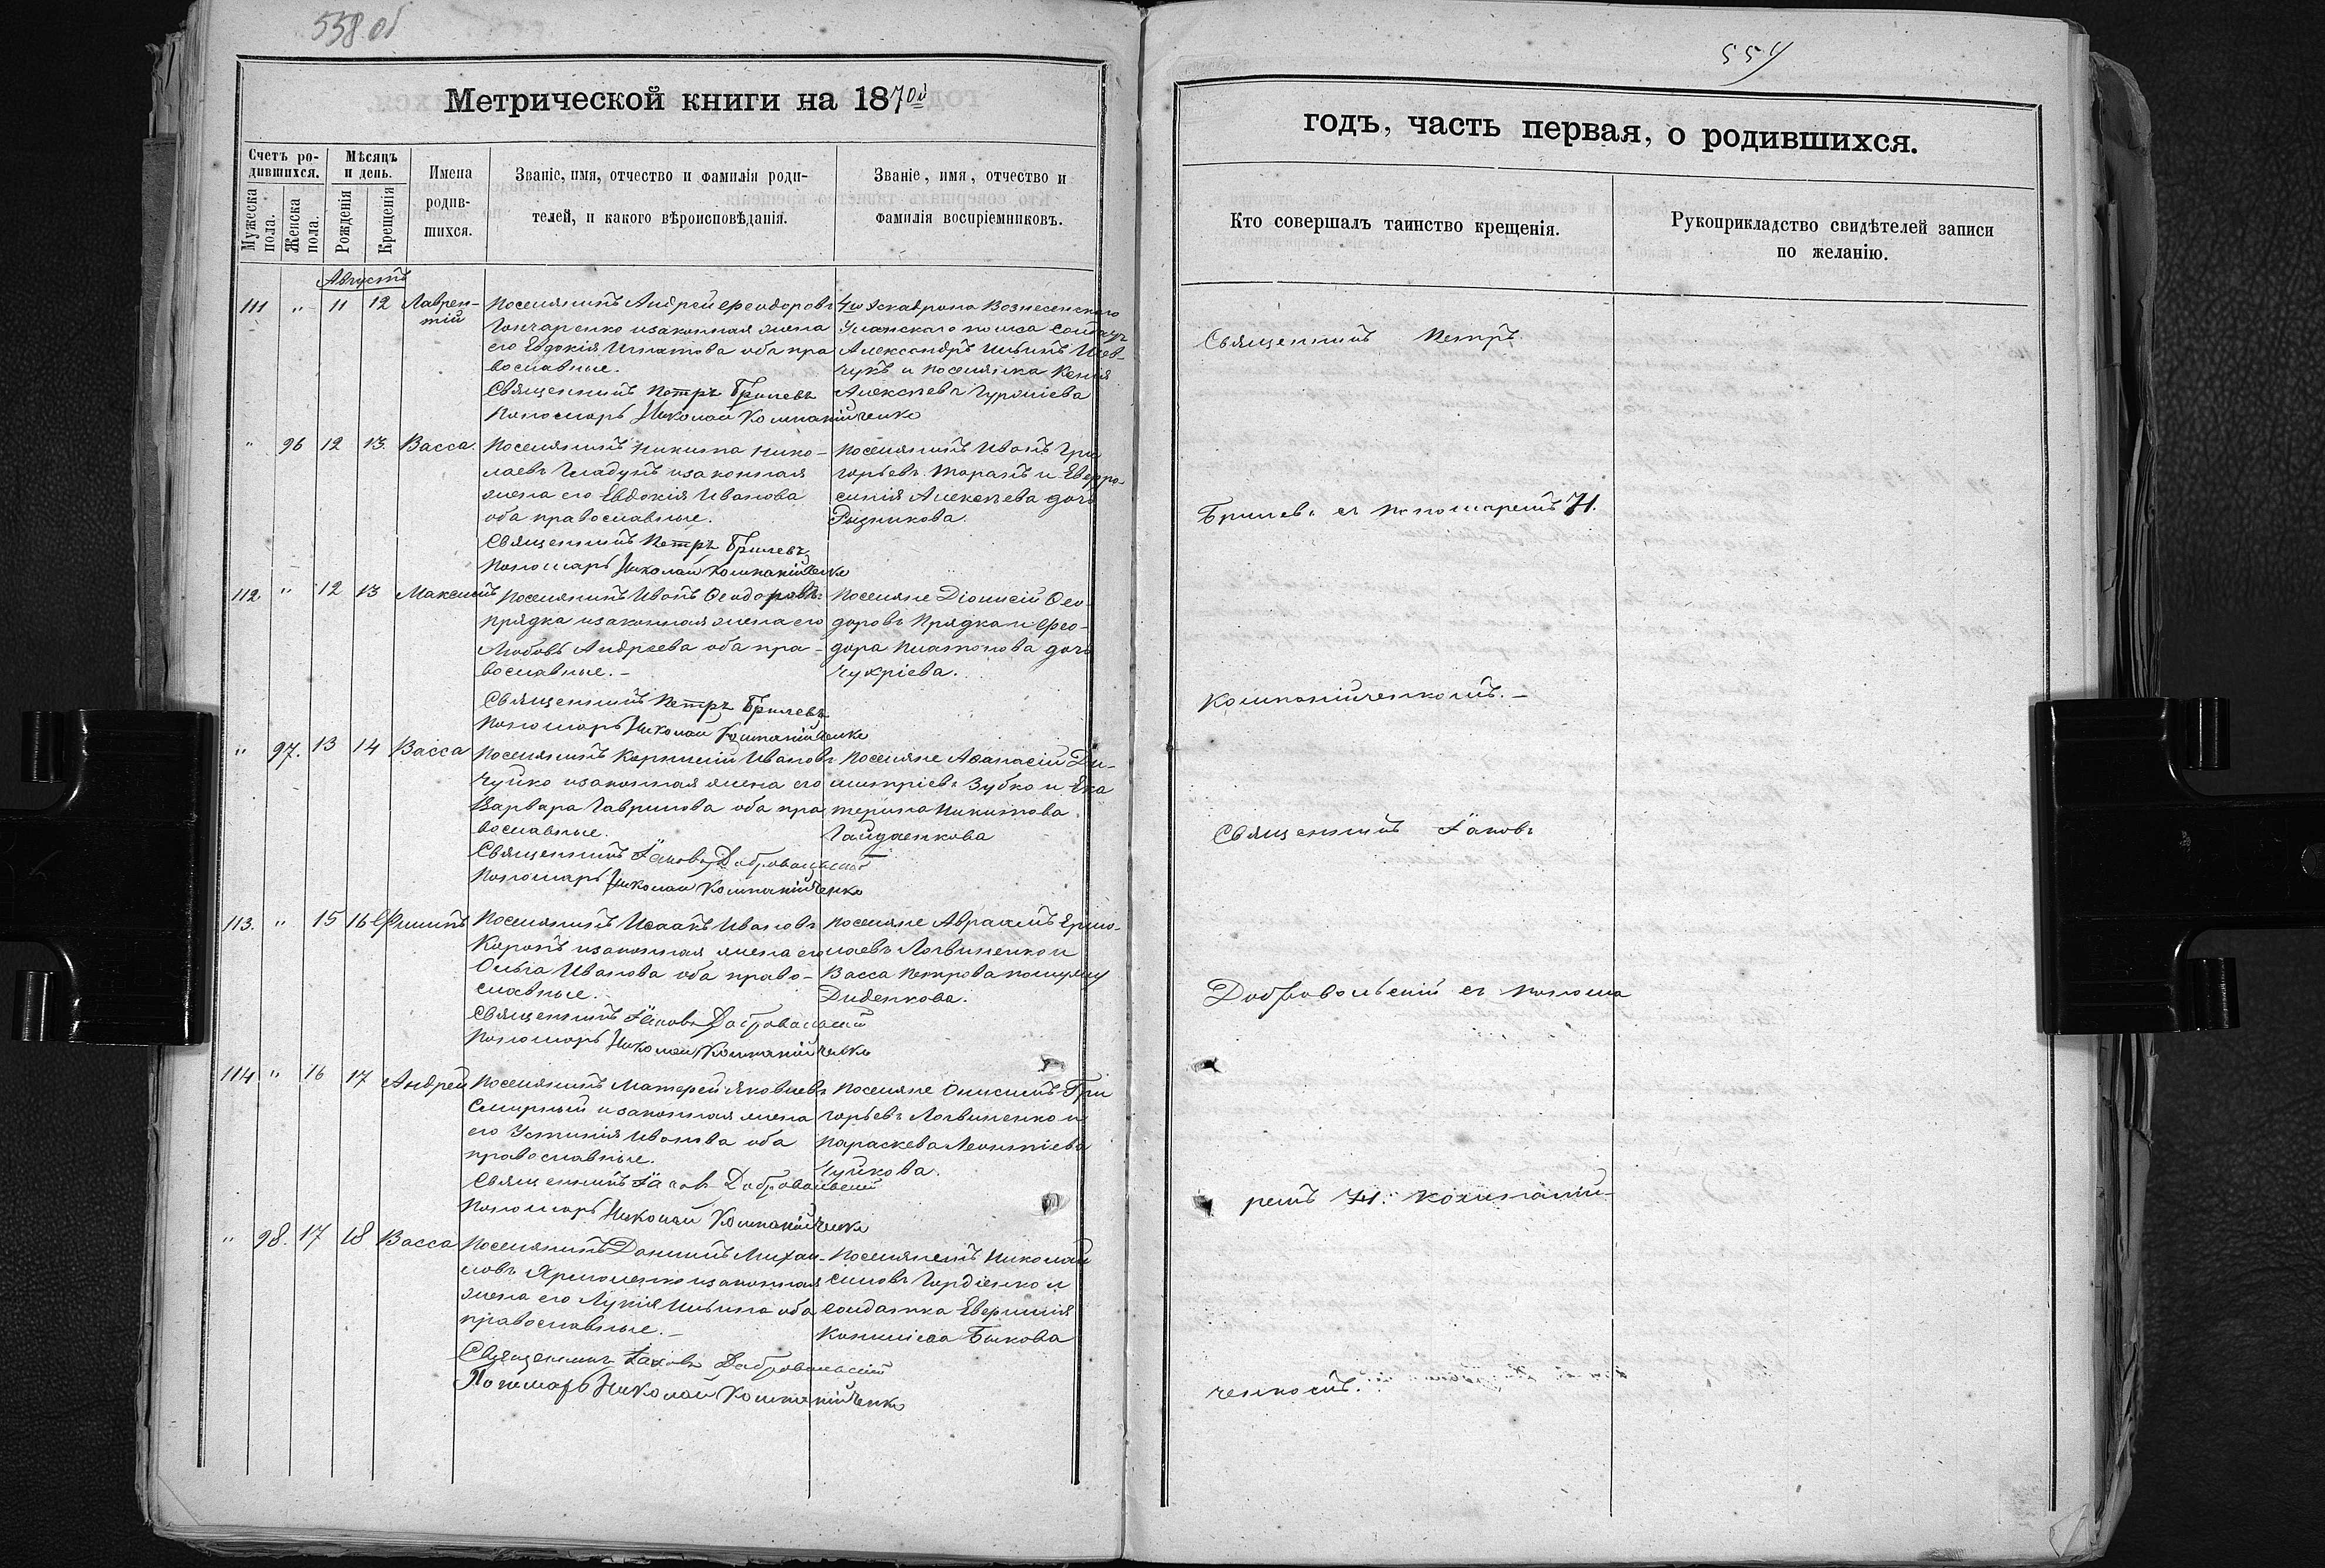 558 об
Метрической книги на 1870й
Счетъ ро-
дившихся.
Мужеска
пола.
Женска
пола.
Мѣсяцъ
и день.
Рожденія
Крещенія
Имена
родив-
шихся.
Званіе, имя, отчество и фамилія роди-
телей, и какого вѣроисповѣданія.
Званіе, имя, отчество и
фамилія воспріемниковъ.
Августъ
111 " 11 12 Лаврен-
тій
Поселянинъ Андрей Феодоровъ
Гончаренко и законная жена
его Евдокія Игнатова оба пра
вославные.
Священникъ Петръ Брилевъ
Пономарь Николай Компанійченко
4го Эскадрона Вознесенскаго
Уланскаго полка Солдатъ
Александръ Ильинъ Шев-
чукъ и поселянка Ксенія
Алексѣева
" 96 12 13. Васса.
Поселянинъ Никита Нико-
лаевъ Гладунъ и законная
жена его Евдокія Иванова
оба православные.
Священникъ Петръ Брилевъ
Пономарь Николай Компанійченко
Поселянинъ Иванъ Гри
горьевъ Таранъ и Евфро-
синія Алексѣева дочь
Рызникова.
112. " 12 13 Максимъ
Поселянинъ Иванъ Ѳеодоровъ
Прядка и законная жена его
Любовь Андреева оба пра-
вославные.-
Священникъ Петръ Брилевъ
Пономарь Николай Компанійченко
Поселяне Діонисій Ѳео-
доровъ Прядка и Фео-
дора Платонова дочь
Чукріева.
" 97. 13 14 Васса
Поселянинъ Корнилій Ивановъ
Чуйко и законная жена его
Варвара Гаврилова оба пра
вославные.
Священникъ Іаковъ Добровольскій
Пономарь Николай Компанійченко
Поселяне Аѳанасій Ди-
митріевъ Зубко и Ека
терина Никитова
Гайдаенкова
113. " 15 16 Филипъ
Поселянинъ Исаакъ Ивановъ
Коропъ и законная жена его
Ольга Иванова оба право-
славные.
Священникъ Іаковъ Добровольскій
Пономарь Николай Компанійченко
Поселяне Авраамъ Ермо-
лаевъ Логвиненко и
Васса Петрова по мужу
Диденкова.
114 " 16 17 Андрей
Поселянинъ Матфей Яковлевъ
Смирный и законная жена
его Устинія Иванова оба
православные.
Священникъ Іаковъ Добровольскій
Пономарь Николай Компанійченко
Поселяне Онисимъ Гри
горьевъ Логвиненко и
Параскева Леонтіева
Чуйкова.
" 98. 17 18 Васса
Поселянинъ Даниилъ Михаи-
ловъ Ярмоленко и законная
жена его Лукія Ильина оба
православные.-
Священникъ Іаковъ Добровольскій
Пономарь Николай Компанійченко
Поселянинъ Николай
Гордіенко и
солдатка
Быкова
559
годъ, часть первая, о родившихся.
Кто совершалъ таинство крещенія.
Рукоприкладство свидѣтелей записи
по желанію.
Священникъ Петръ
Брилевъ съ пономаремъ Н.
Компанійченкомъ.-
Священникъ Іаковъ
Добровольскій съ понома
ремъ Н. Компаній-
ченкомъ.